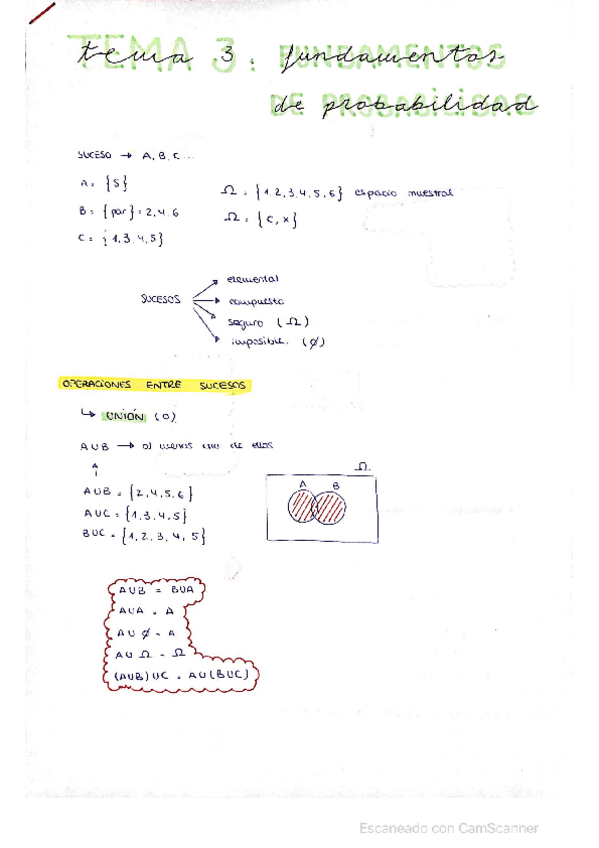 tema 3: fundamentos
de probabilidad
SUCESO → A, B, C ...
A = {5}
B = {par} = 2, 4, 6
C = {1, 3, 4, 5}
Ω = {1, 2, 3, 4, 5, 6} espacio muestral
Ω = {C, x}
SUCESOS
elemental
compuesto
seguro (Ω)
imposible. (∅)
OPERACIONES ENTRE SUCESOS
↳ UNIÓN (O)
AUB → al menos uno de ellos
AUB = {2, 4, 5, 6}
AUC = {1, 3, 4, 5}
BUC = {1, 2, 3, 4, 5}
Ω
A B
AUB = BUA
AUA = A
AU∅ = A
AUΩ = Ω
(AUB)UC = AU(BUC)
Escaneado con CamScanner